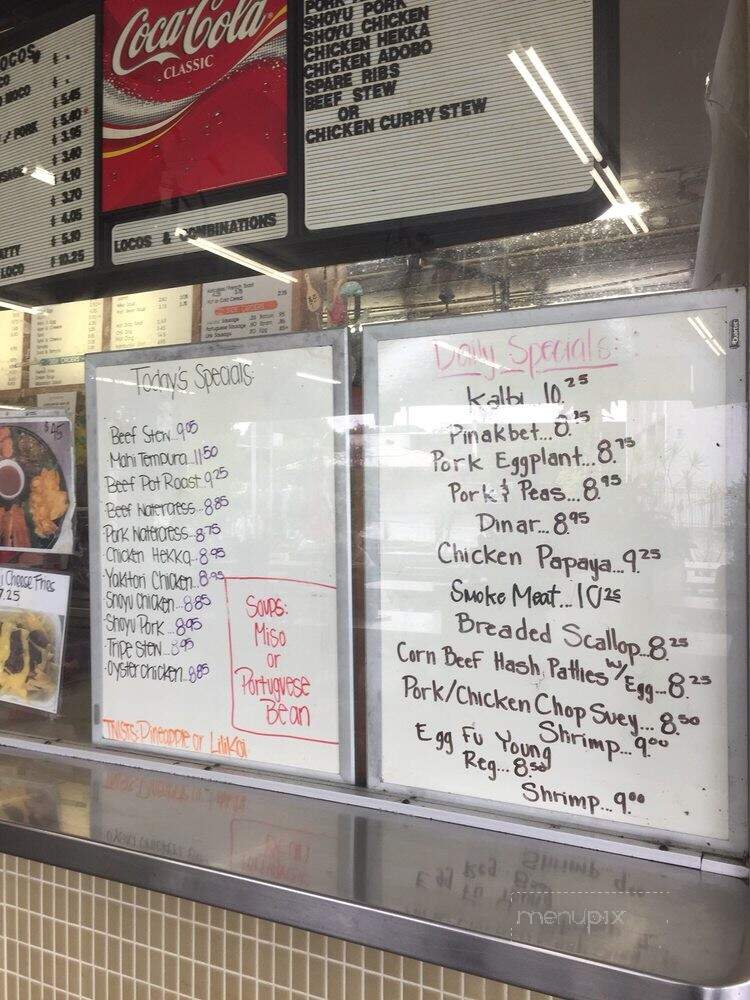 Coca-Cola
CLASSIC
SHOYU PORK
SHOYU CHICKEN
CHICKEN HEKKA
CHICKEN ADOBO
SPARE RIBS
BEEF STEW
OR
CHICKEN CURRY STEW
MOCO
$ 5.45
$ 5.40
PORK $ 3.95
$ 3.40
$ 4.10
$ 3.70
$ 4.05
$ 5.10
LOCO $ 10.25
LOCOS & COMBINATIONS
Today's Specials:
Beef Stew...9.05
Mahi Tempura...11.50
Beef Pot Roast 9.25
Beef Watercress...8.85
Pork Watercress...8.75
Chicken Hekka...8.95
Yakitori Chicken...8.95
Shoyu Chicken...8.85
Shoyu Pork...8.95
Tripe Stew...8.95
Oyster chicken...8.85
Soups:
Miso
or
Portuguese
Bean
TWISTS: Pineapple or Lilikoi
Daily Specials:
Kalbi 10.25
Pinakbet...
Pork Eggplant...8.75
Pork & Peas...8.95
Dinar...8.95
Chicken Papaya...9.25
Smoke Meat...10.25
Breaded Scallop...8.25
Corn Beef Hash Patties w/ Egg...8.25
Pork/Chicken Chop Suey...8.50
Shrimp...9.00
Egg Fu Young
Reg...8.50
Shrimp...9.00
Cheese Fries
7.25
Quartet
menupix